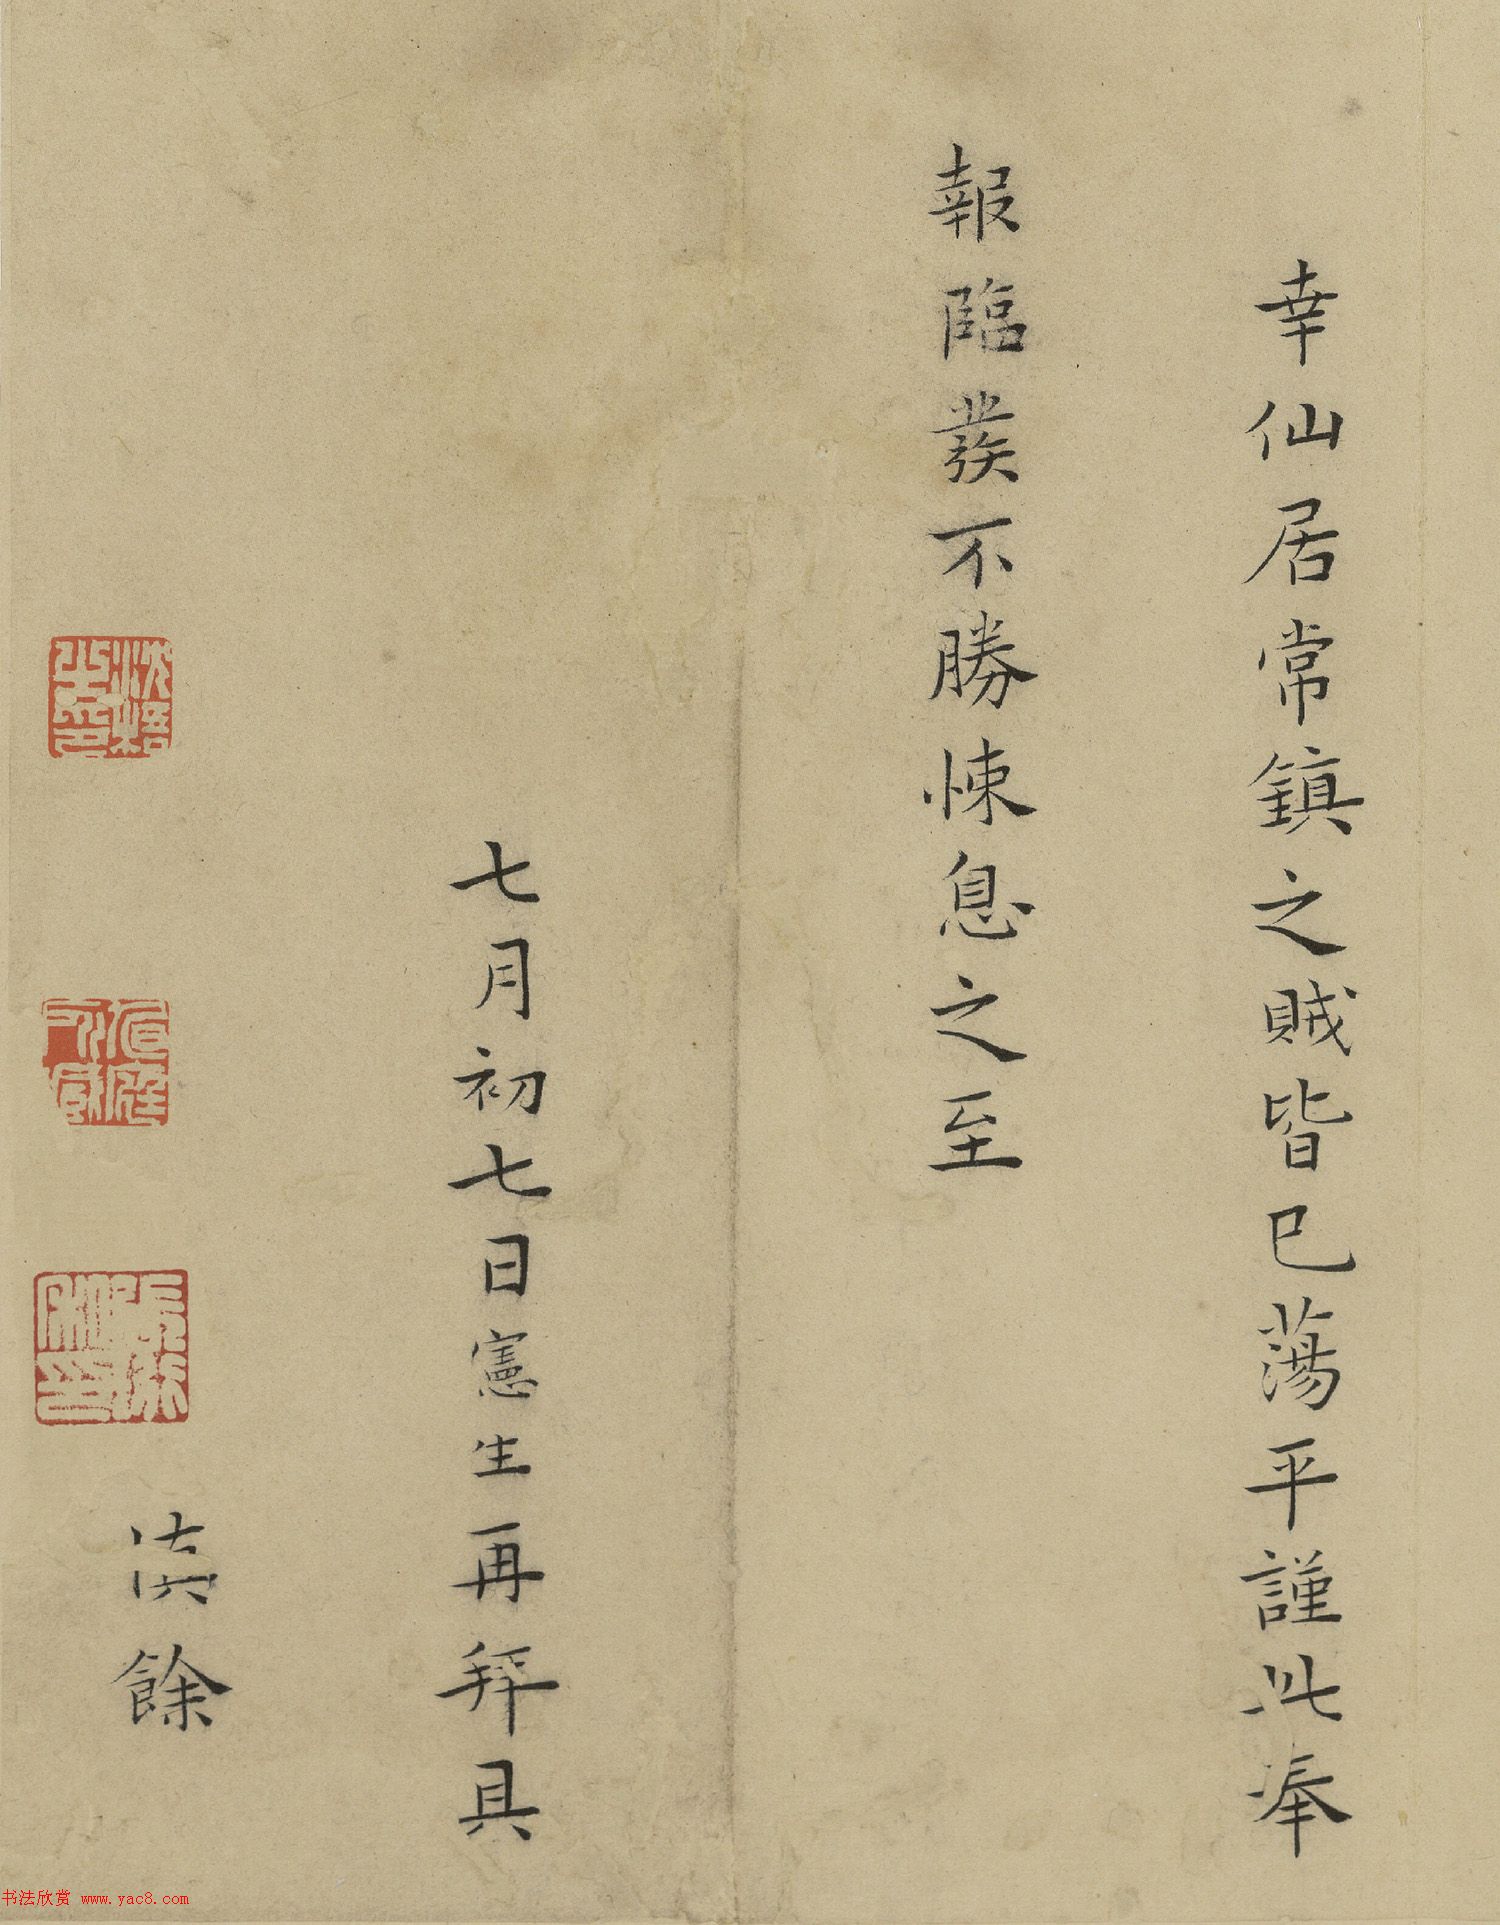 幸仙居常鎮之賊皆已蕩平謹此奉
報臨發不勝悚息之至
七月初七日憲生再拜具
慎餘
书法欣赏 www.yac8.com